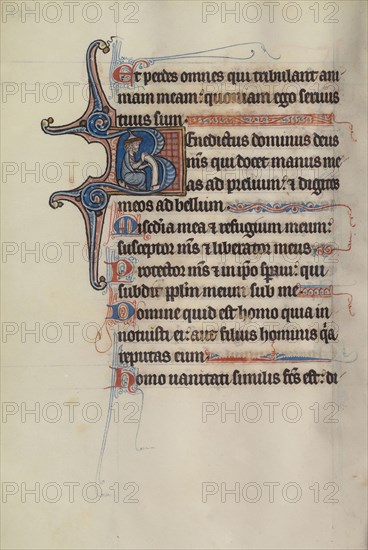 Et perdes omnes qui tribulant ani
mam meam: quoniam ego seruus
tuus sum
Benedictus dominus deus
m̅s qui docet manus me
as ad prelium: & digitos
meos ad bellum
Misc̅dia mea & refugium meum:
susceptor m̅s & liberator meus
Protector m̅s & in ip̅o sp̅aui: qui
subdit pp̅lm meum sub me
Domine quid est homo quia in
notuisti ei: aut filius hominis q̅a
reputas eum
Homo uanitati similis fc̅s est: di
PHOTO 12